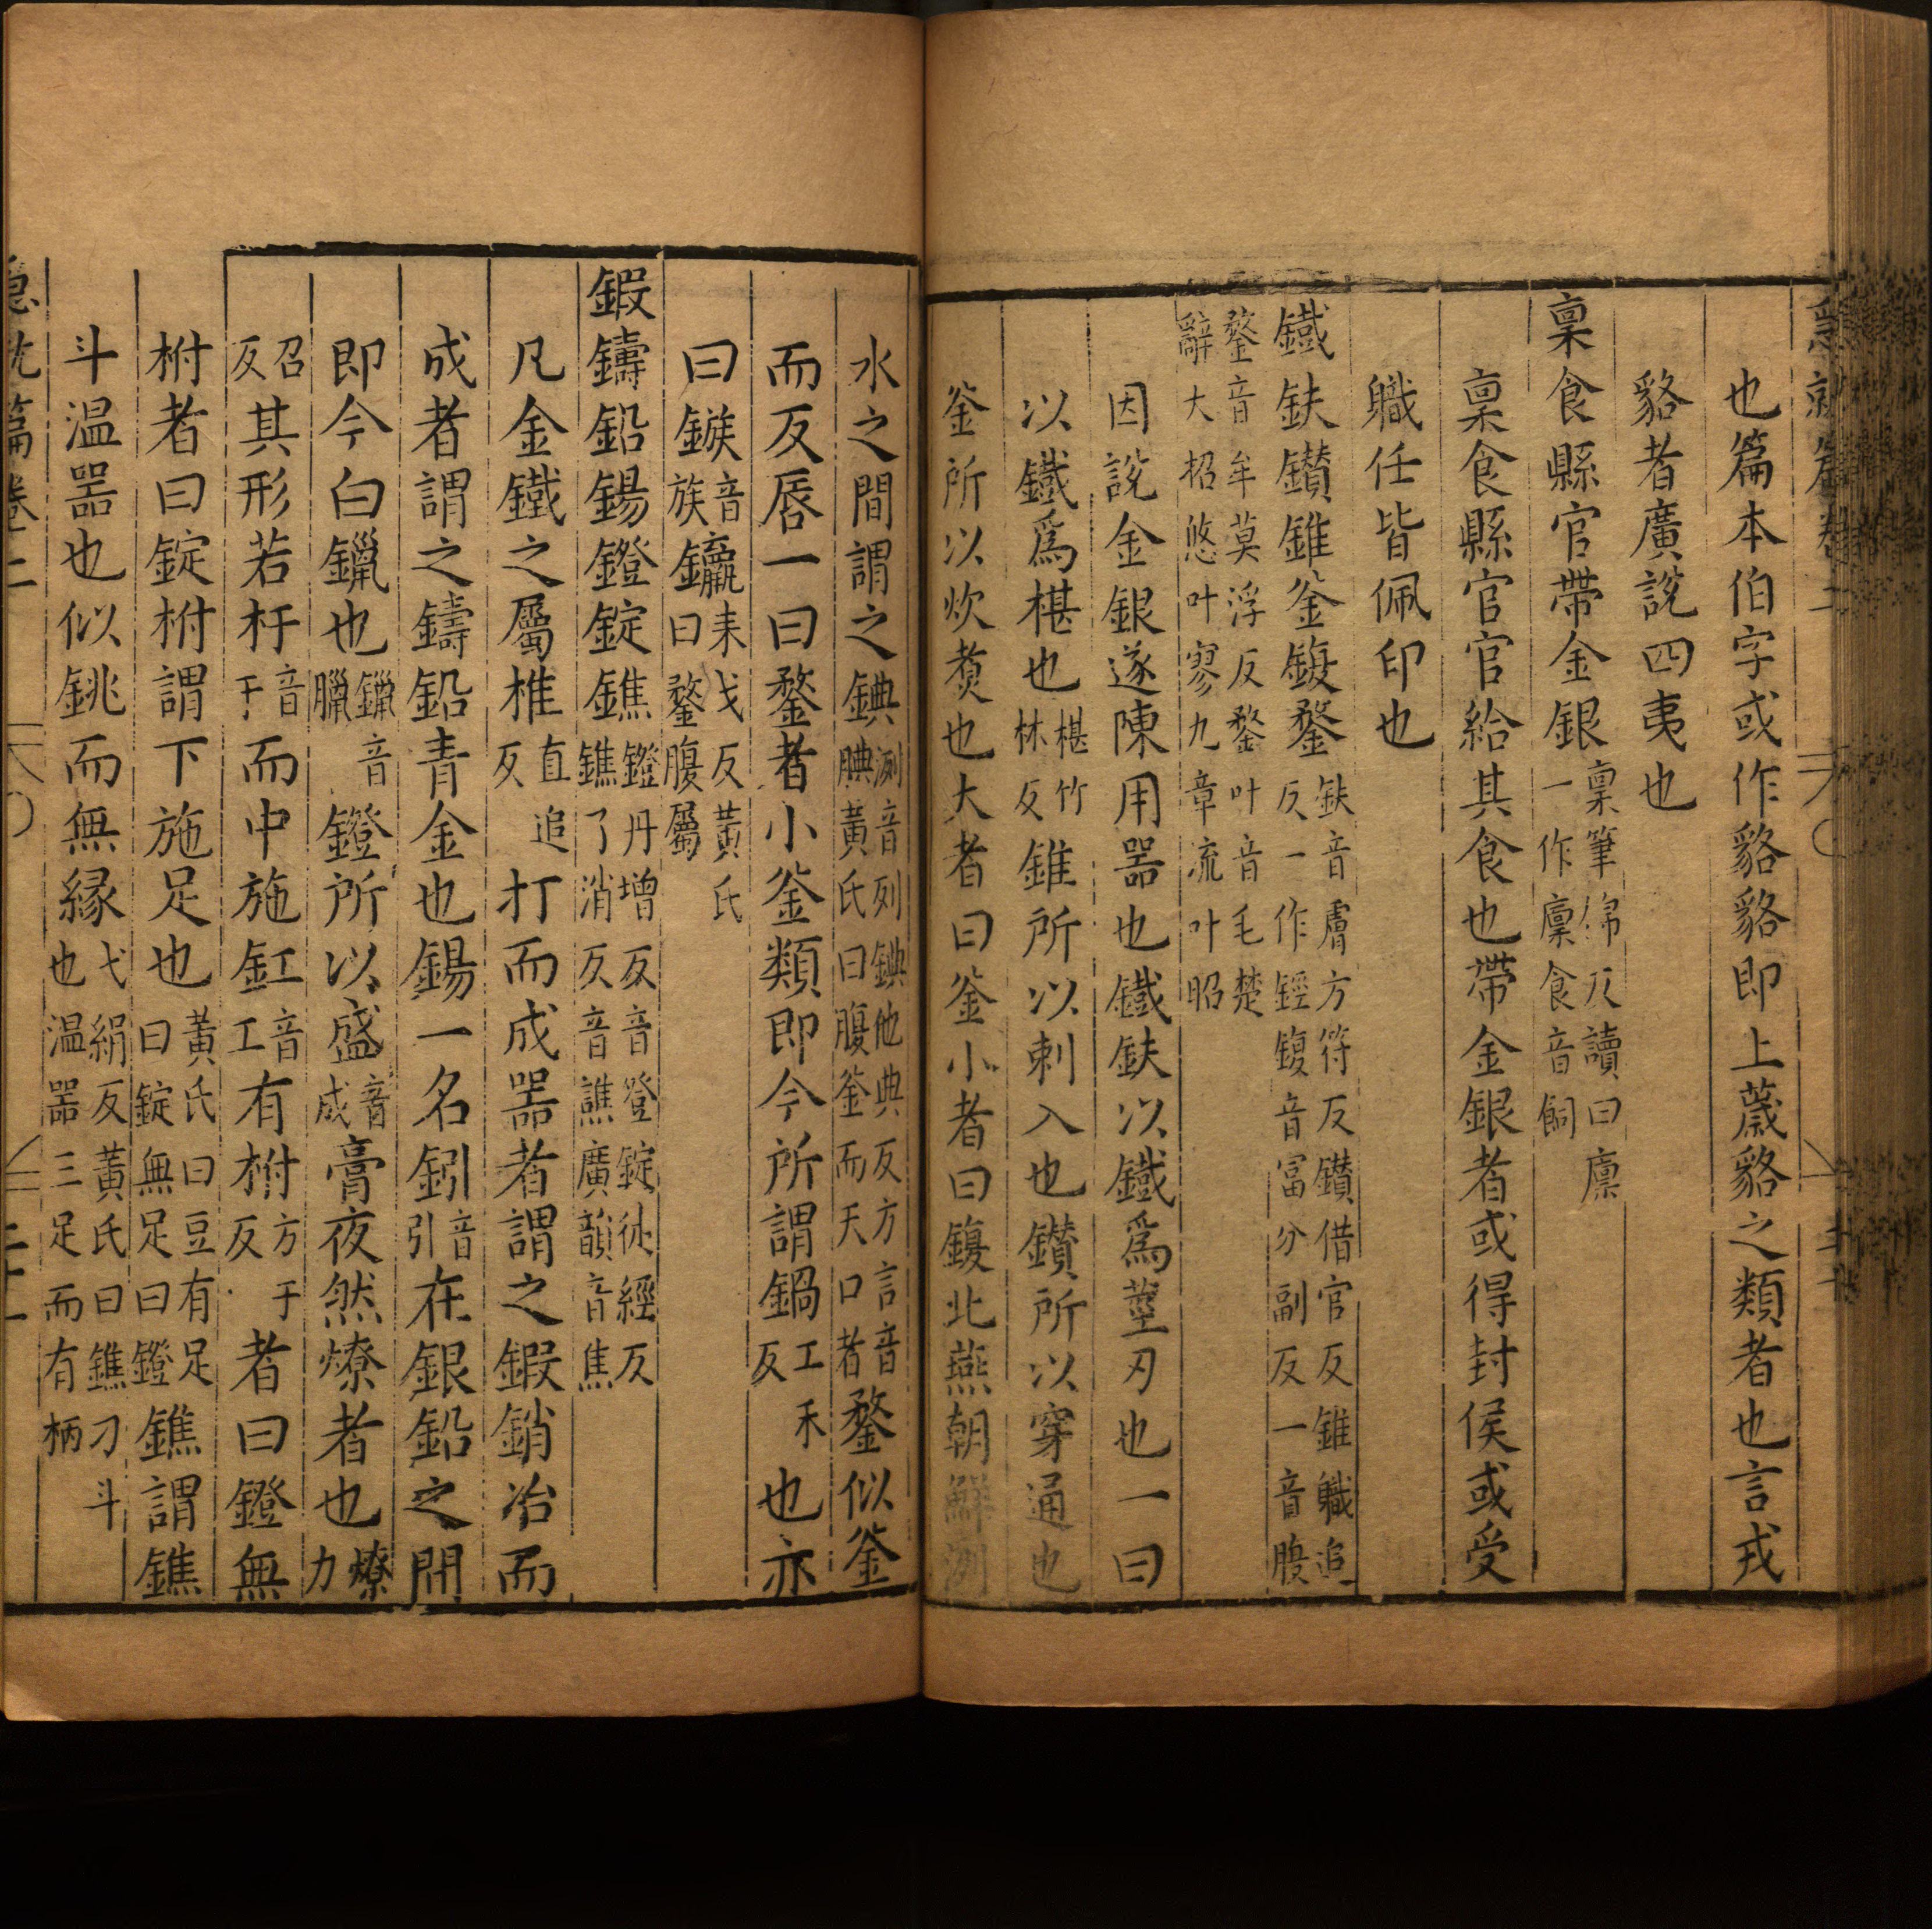 也篇本伯字或作貉貉即上薉貉之類者也言戎
貉者廣說四夷也
稟食縣官帶金銀稟筆綿反讀曰廩一作廩食音飼
稟食縣官官給其食也帶金銀者或得封侯或受
職任皆佩印也
鐵鈇鑚錐釜鍑鍪鈇音膚方符反鑚借官反錐職追反一作鋞鍑音富分副反一音腹
鍪音牟莫浮反鍪叶音毛楚辭大招悠叶寥九章流叶昭
因說金銀遂陳用器也鐵鈇以鐵爲莝刃也一曰
以鐵爲椹也椹竹林反錐所以刺入也鑚所以穿通也
釜所以炊煑也大者曰釜小者曰鍑北燕朝鮮洌
水之間謂之錪洌音列錪他典反方言音腆黃氏曰腹釜而天口者鍪似釜
而反唇一曰鍪者小釜類即今所謂鍋工禾反也亦
曰鏃音族鑹耒戈反黃氏曰鍪腹屬
鍛鑄鉛錫鐙錠鐎鐙丹增反音登錠徒經反鐎了消反音譙廣韻音焦
凡金鐵之屬椎直追反打而成器者謂之鍛銷冶而
成者謂之鑄鉛青金也錫一名鈏音引在銀鉛之間
即今白鑞也鑞音臘鐙所以盛音成膏夜然燎者也燎力
召反其形若杅音于而中施釭音工有柎方于反者曰鐙無
柎者曰錠柎謂下施足也黃氏曰豆有足曰錠無足曰鐙鐎謂鐎
斗温器也似銚而無緣弋絹反黃氏曰鐎刁斗也温器三足而有柄
急就篇卷二